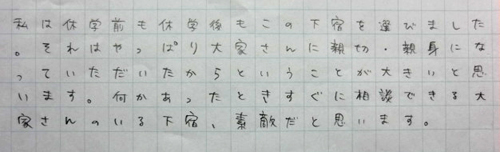 私は休学前も休学後もこの下宿を選びました
。それはやっぱり大家さんに親切・親身にな
っていただいたからということが大きいと思
います。何かあったときすぐに相談できる大
家さんのいる下宿、素敵だと思います。